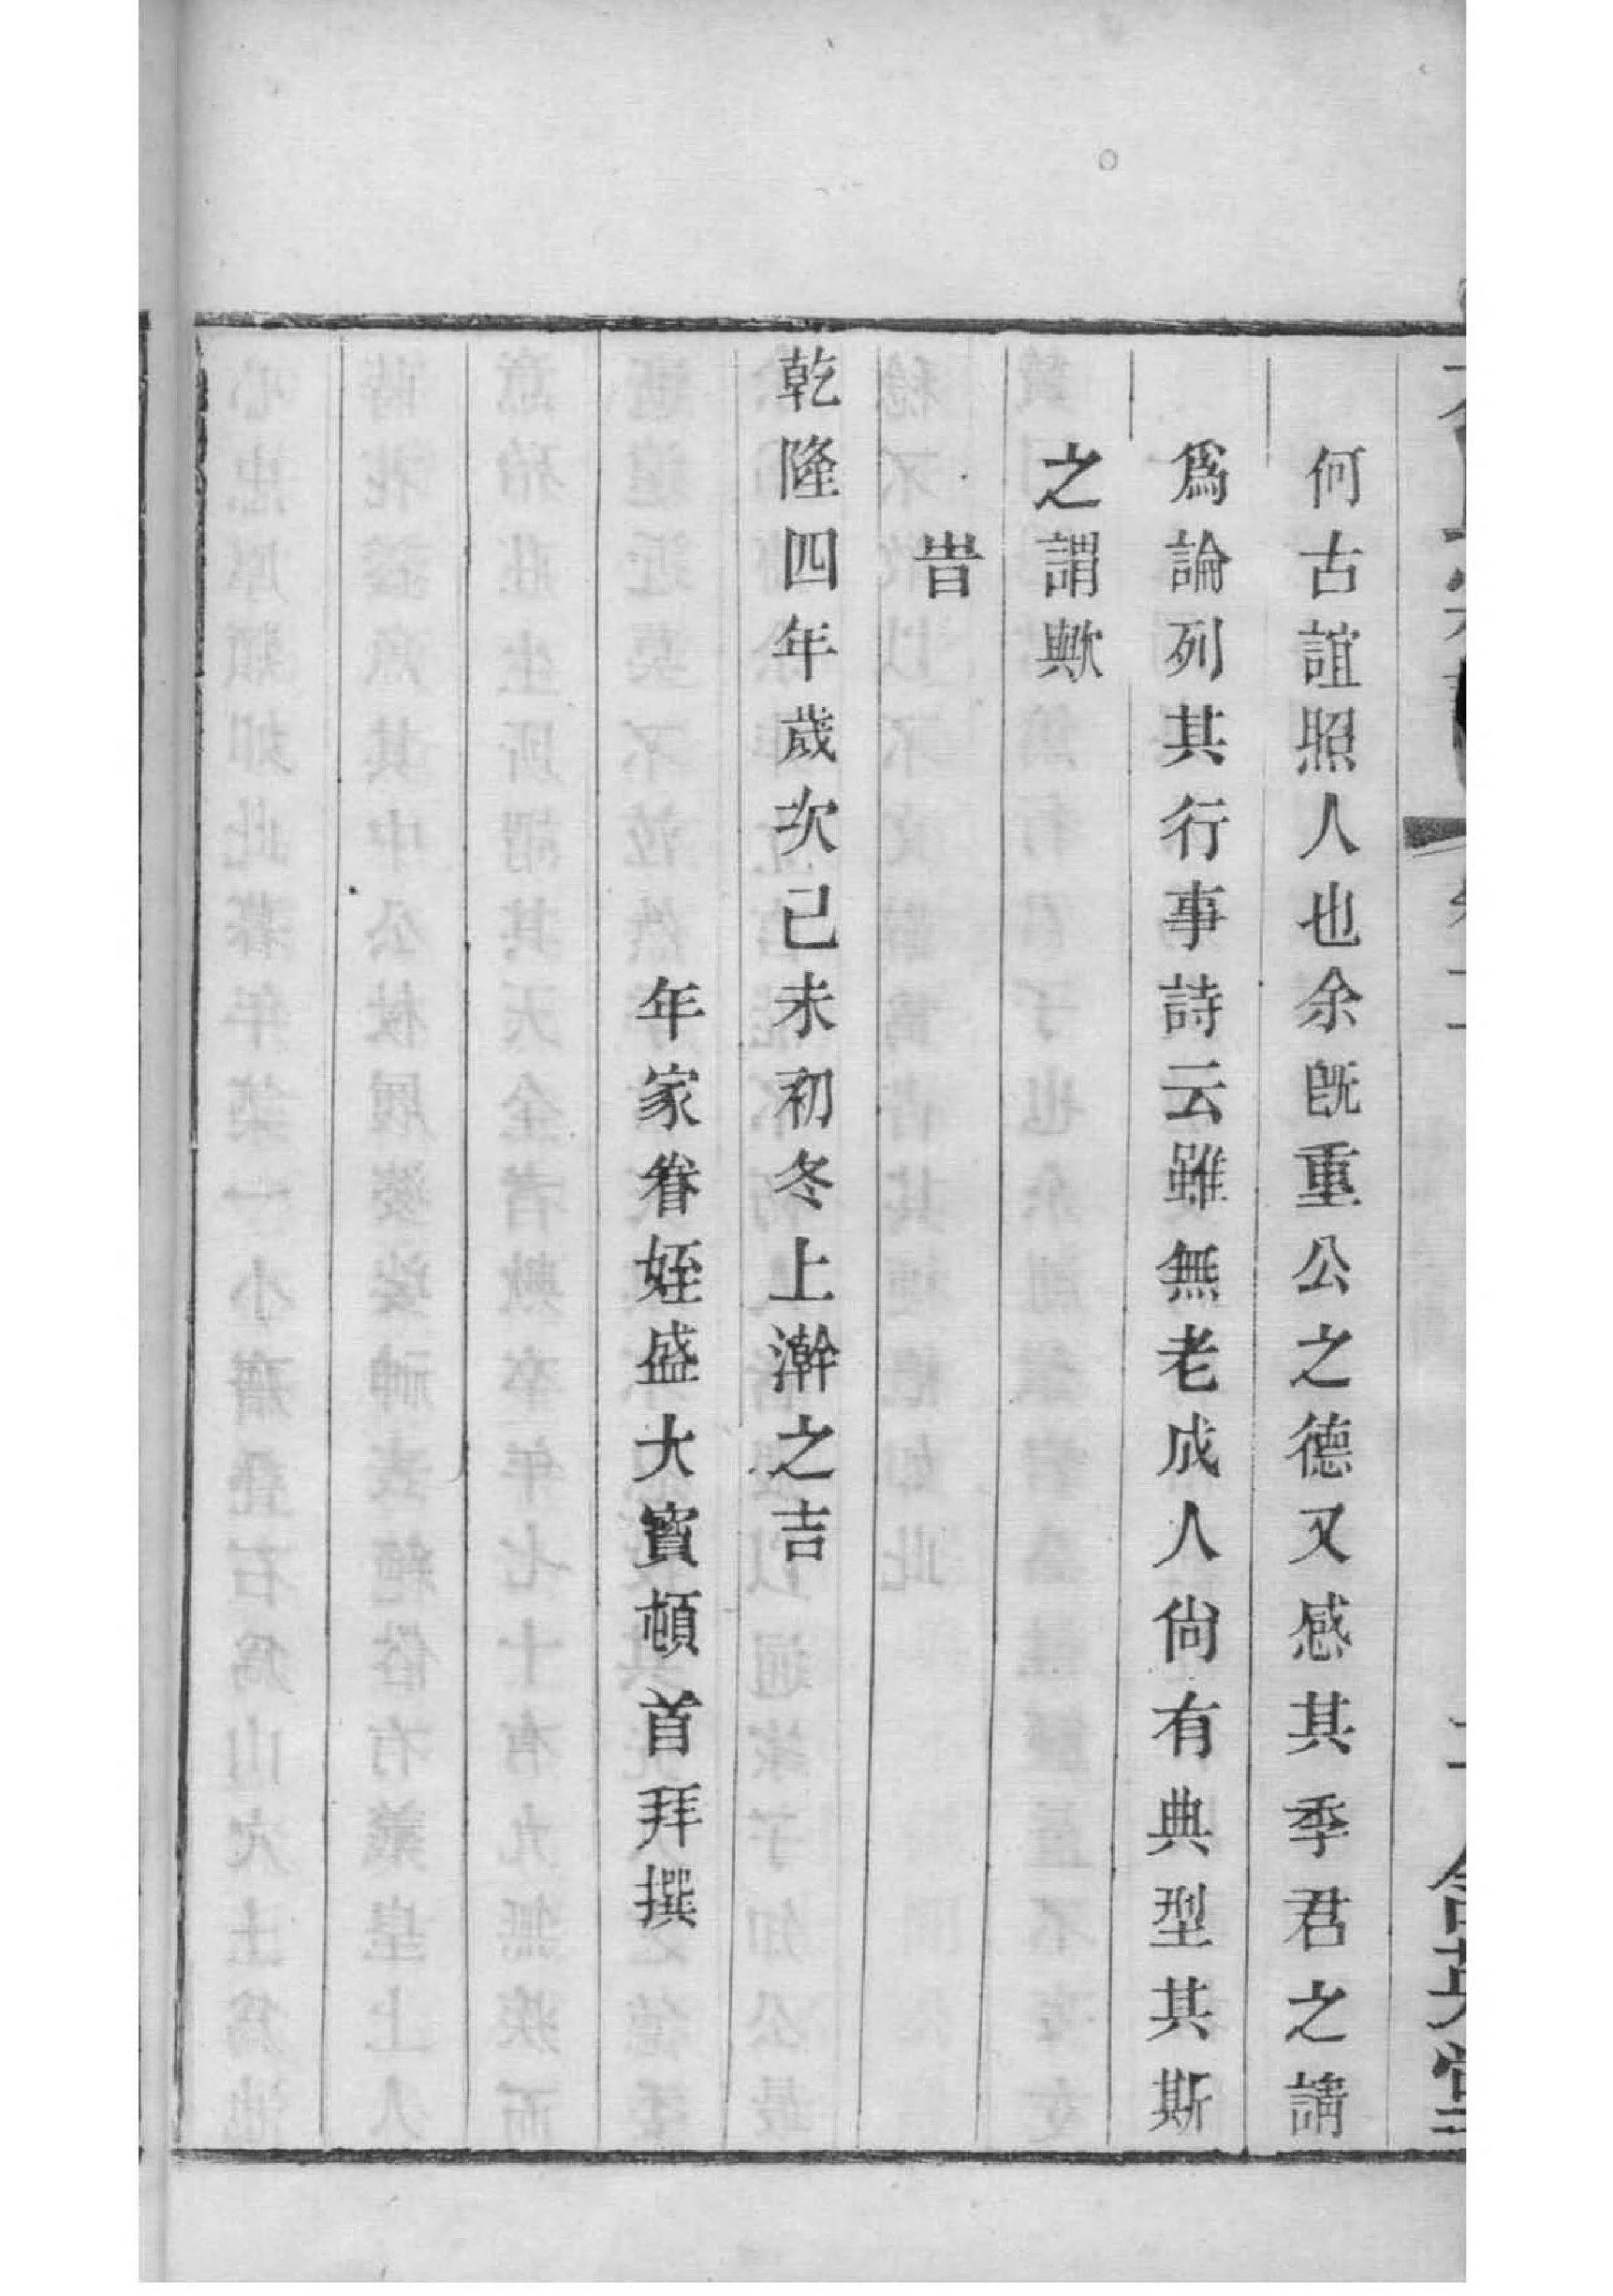 何古誼照人也余既重公之德又感其季君之請
爲論列其行事詩云雖無老成人尙有典型其斯
之謂歟
旹
乾隆四年歲次己未初冬上澣之吉
年家眷姪盛大賓頓首拜撰